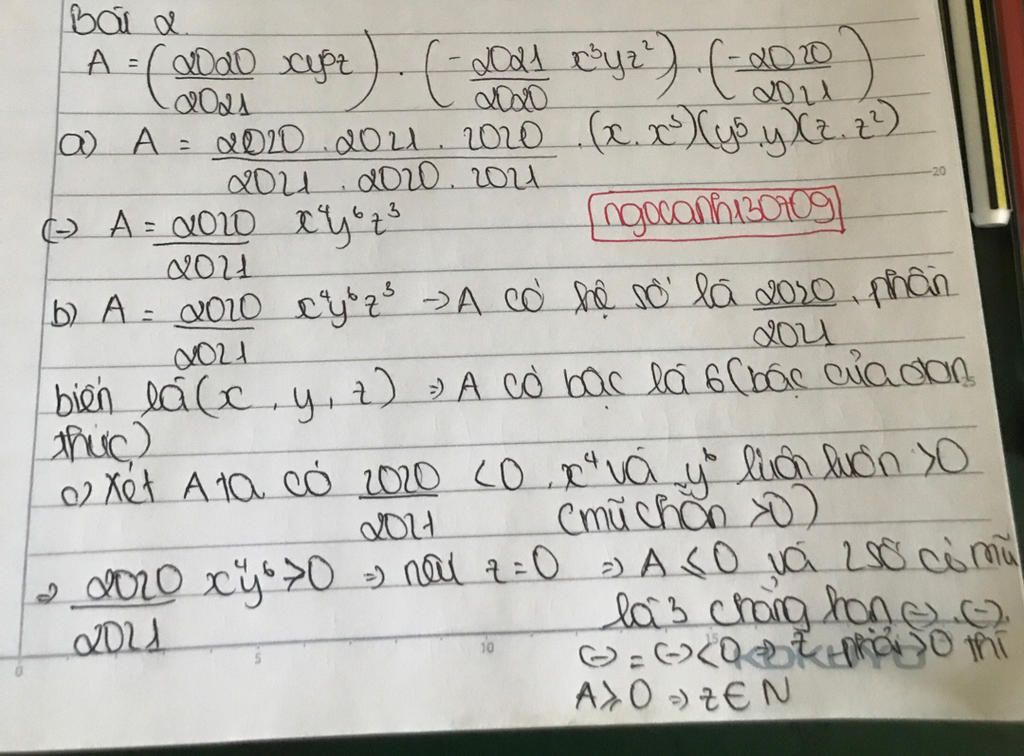 Bài 2
A = (2020/2021 xy⁵z) . (-2021/2020 x³yz²) . (-2020/2021)
a) A = 2020 . 2021 . 2020 / 2021 . 2020 . 2021 . (x . x³)(y⁵ . y)(z . z²)
(-) A = 2020/2021 x⁴y⁶z³
ngocanh130909
b) A = 2020/2021 x⁴y⁶z³ → A có hệ số là 2020/2021 , phần
biến là (x , y , z) ⇒ A có bậc là 6 (bậc của đơn
thức)
c) Xét A ta có 2020/2021 < 0 . x⁴ và y⁶ luôn luôn > 0
(mũ chẵn > 0)
⇒ 2020/2021 x⁴y⁶ > 0 ⇒ nếu z = 0 ⇒ A ≤ 0 và 2 số có mũ
là 3 chẳng hạn (-) . (-) .
(-) = (-) < 0 ⇒ z phải > 0 thì
A ≥ 0 ⇒ z ∈ N
20
0 5 10 15